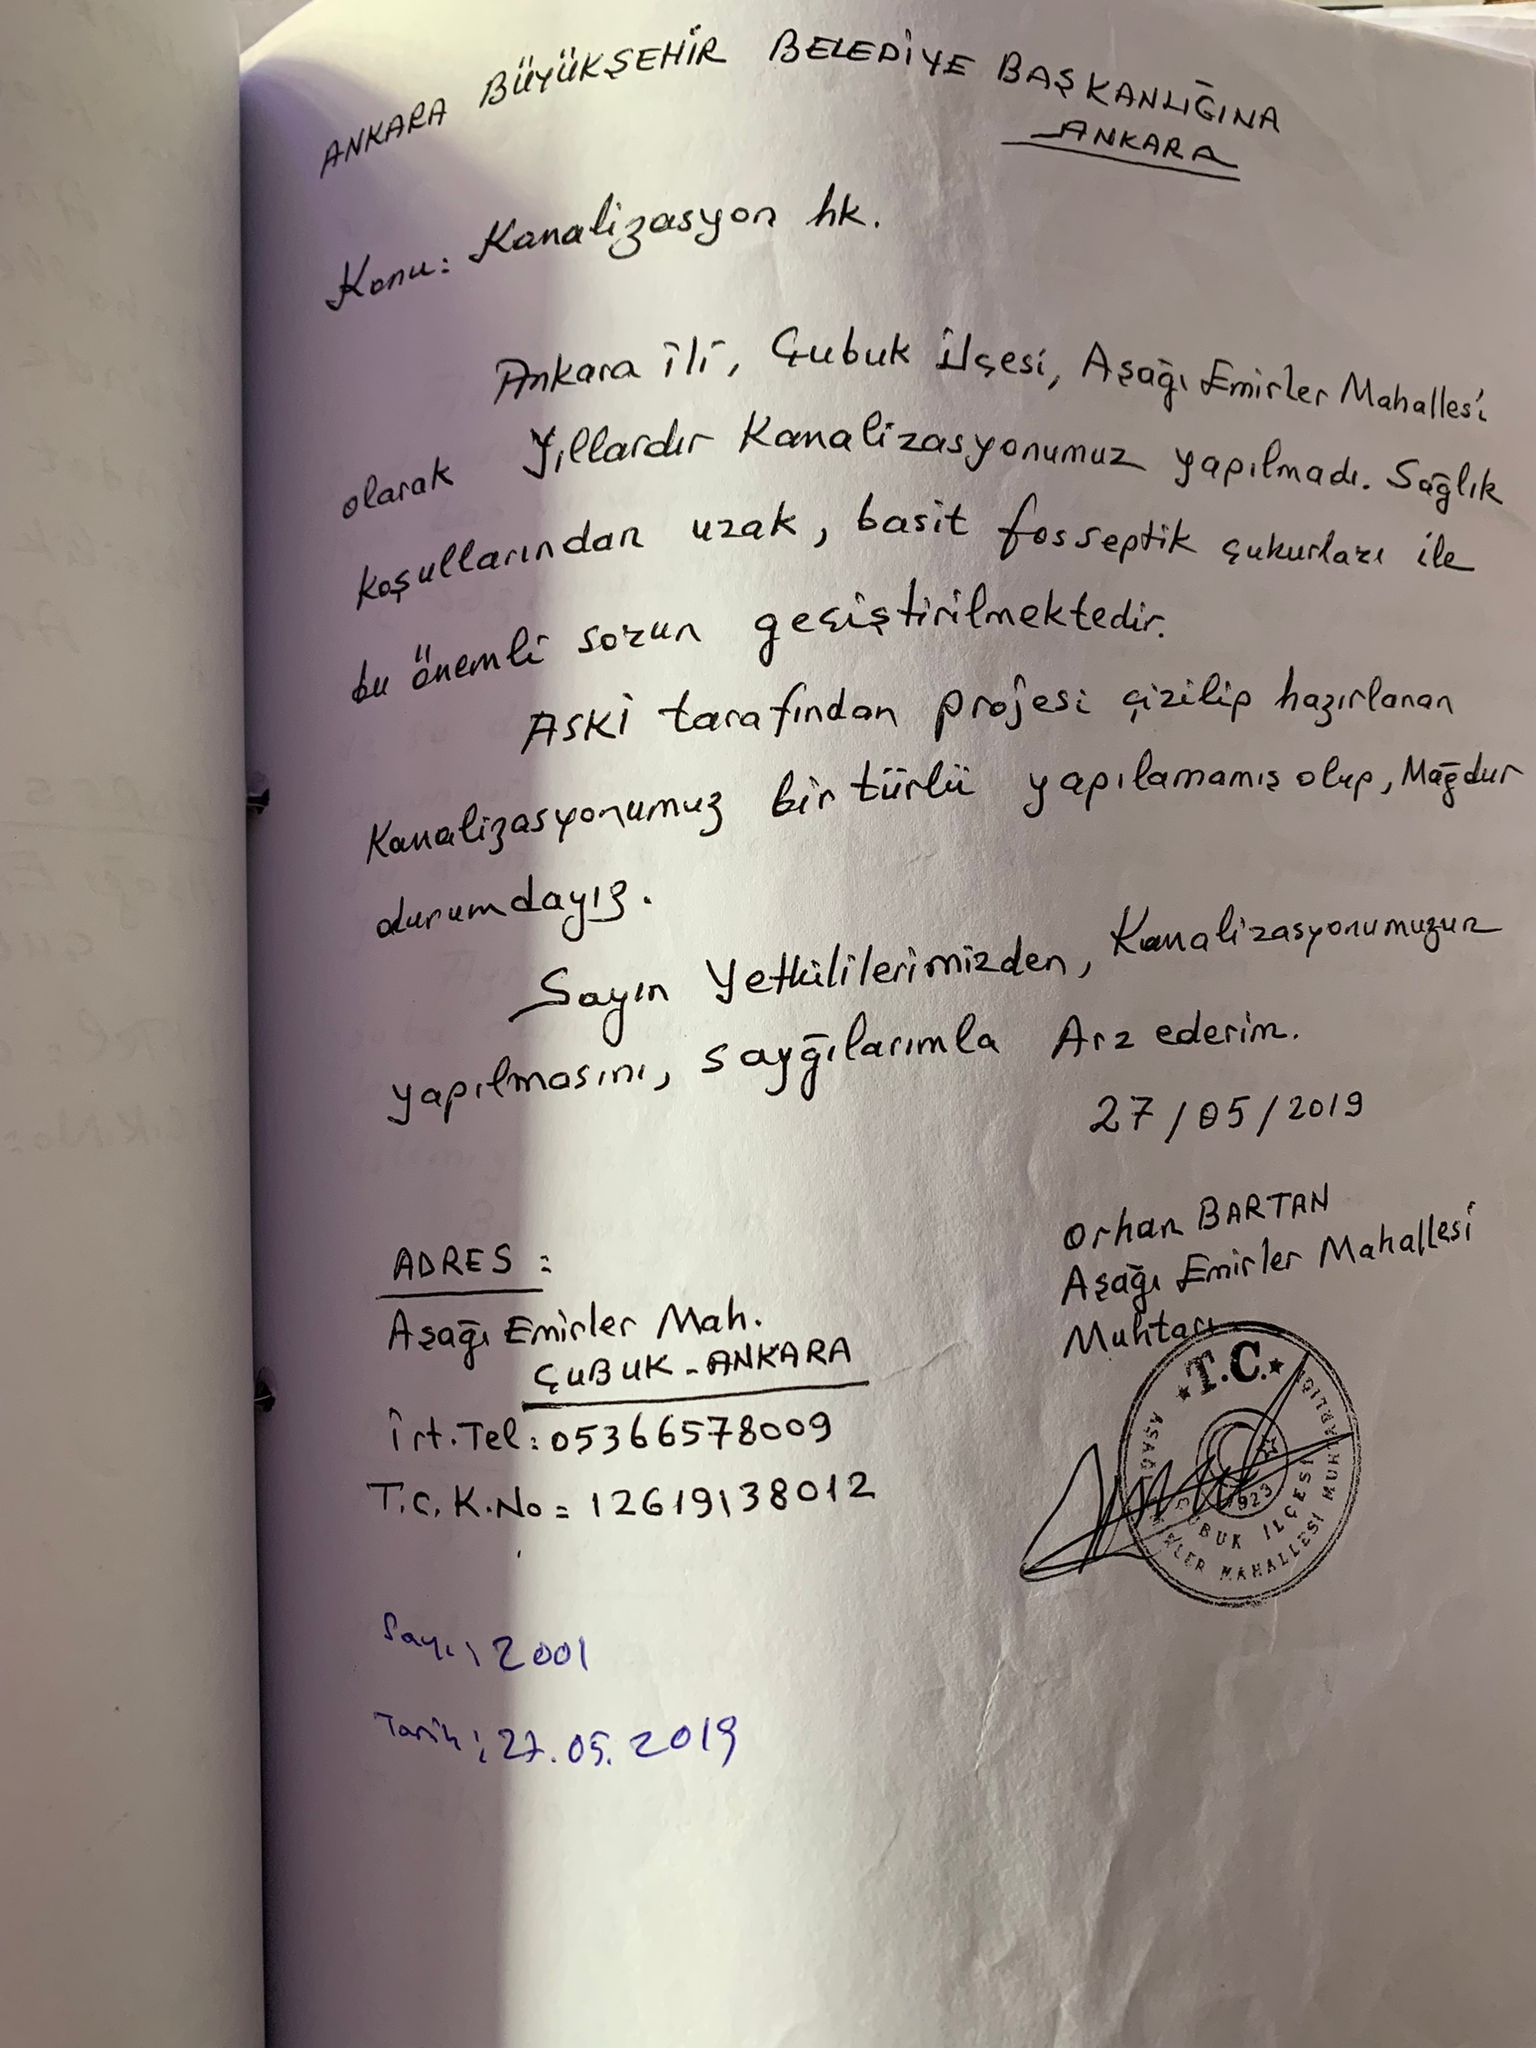 ANKARA BÜYÜKŞEHİR BELEDİYE BAŞKANLIĞINA
ANKARA
Konu: Kanalizasyon hk.
Ankara ili, Çubuk ilçesi, Aşağı Emirler Mahallesi
olarak Yıllardır Kanalizasyonumuz yapılmadı. Sağlık
koşullarından uzak, basit fosseptik çukurları ile
bu önemli sorun geçiştirilmektedir.
ASKİ tarafından projesi çizilip hazırlanan
Kanalizasyonumuz bir türlü yapılamamış olup, Mağdur
durumdayız.
Sayın Yetkililerimizden, Kanalizasyonumuzun
yapılmasını, sayğılarımla Arz ederim.
27/05/2019
Orhan BARTAN
Aşağı Emirler Mahallesi
Muhtarı
ADRES :
Aşağı Emirler Mah.
ÇUBUK - ANKARA
İrt. Tel: 05366578009
T.C. K.No = 12619138012
T.C.
1923
ÇUBUK İLÇESİ
AŞAĞI MAHALLESİ MUHTARLIĞI
Sayı: 2001
Tarih: 27.05.2019